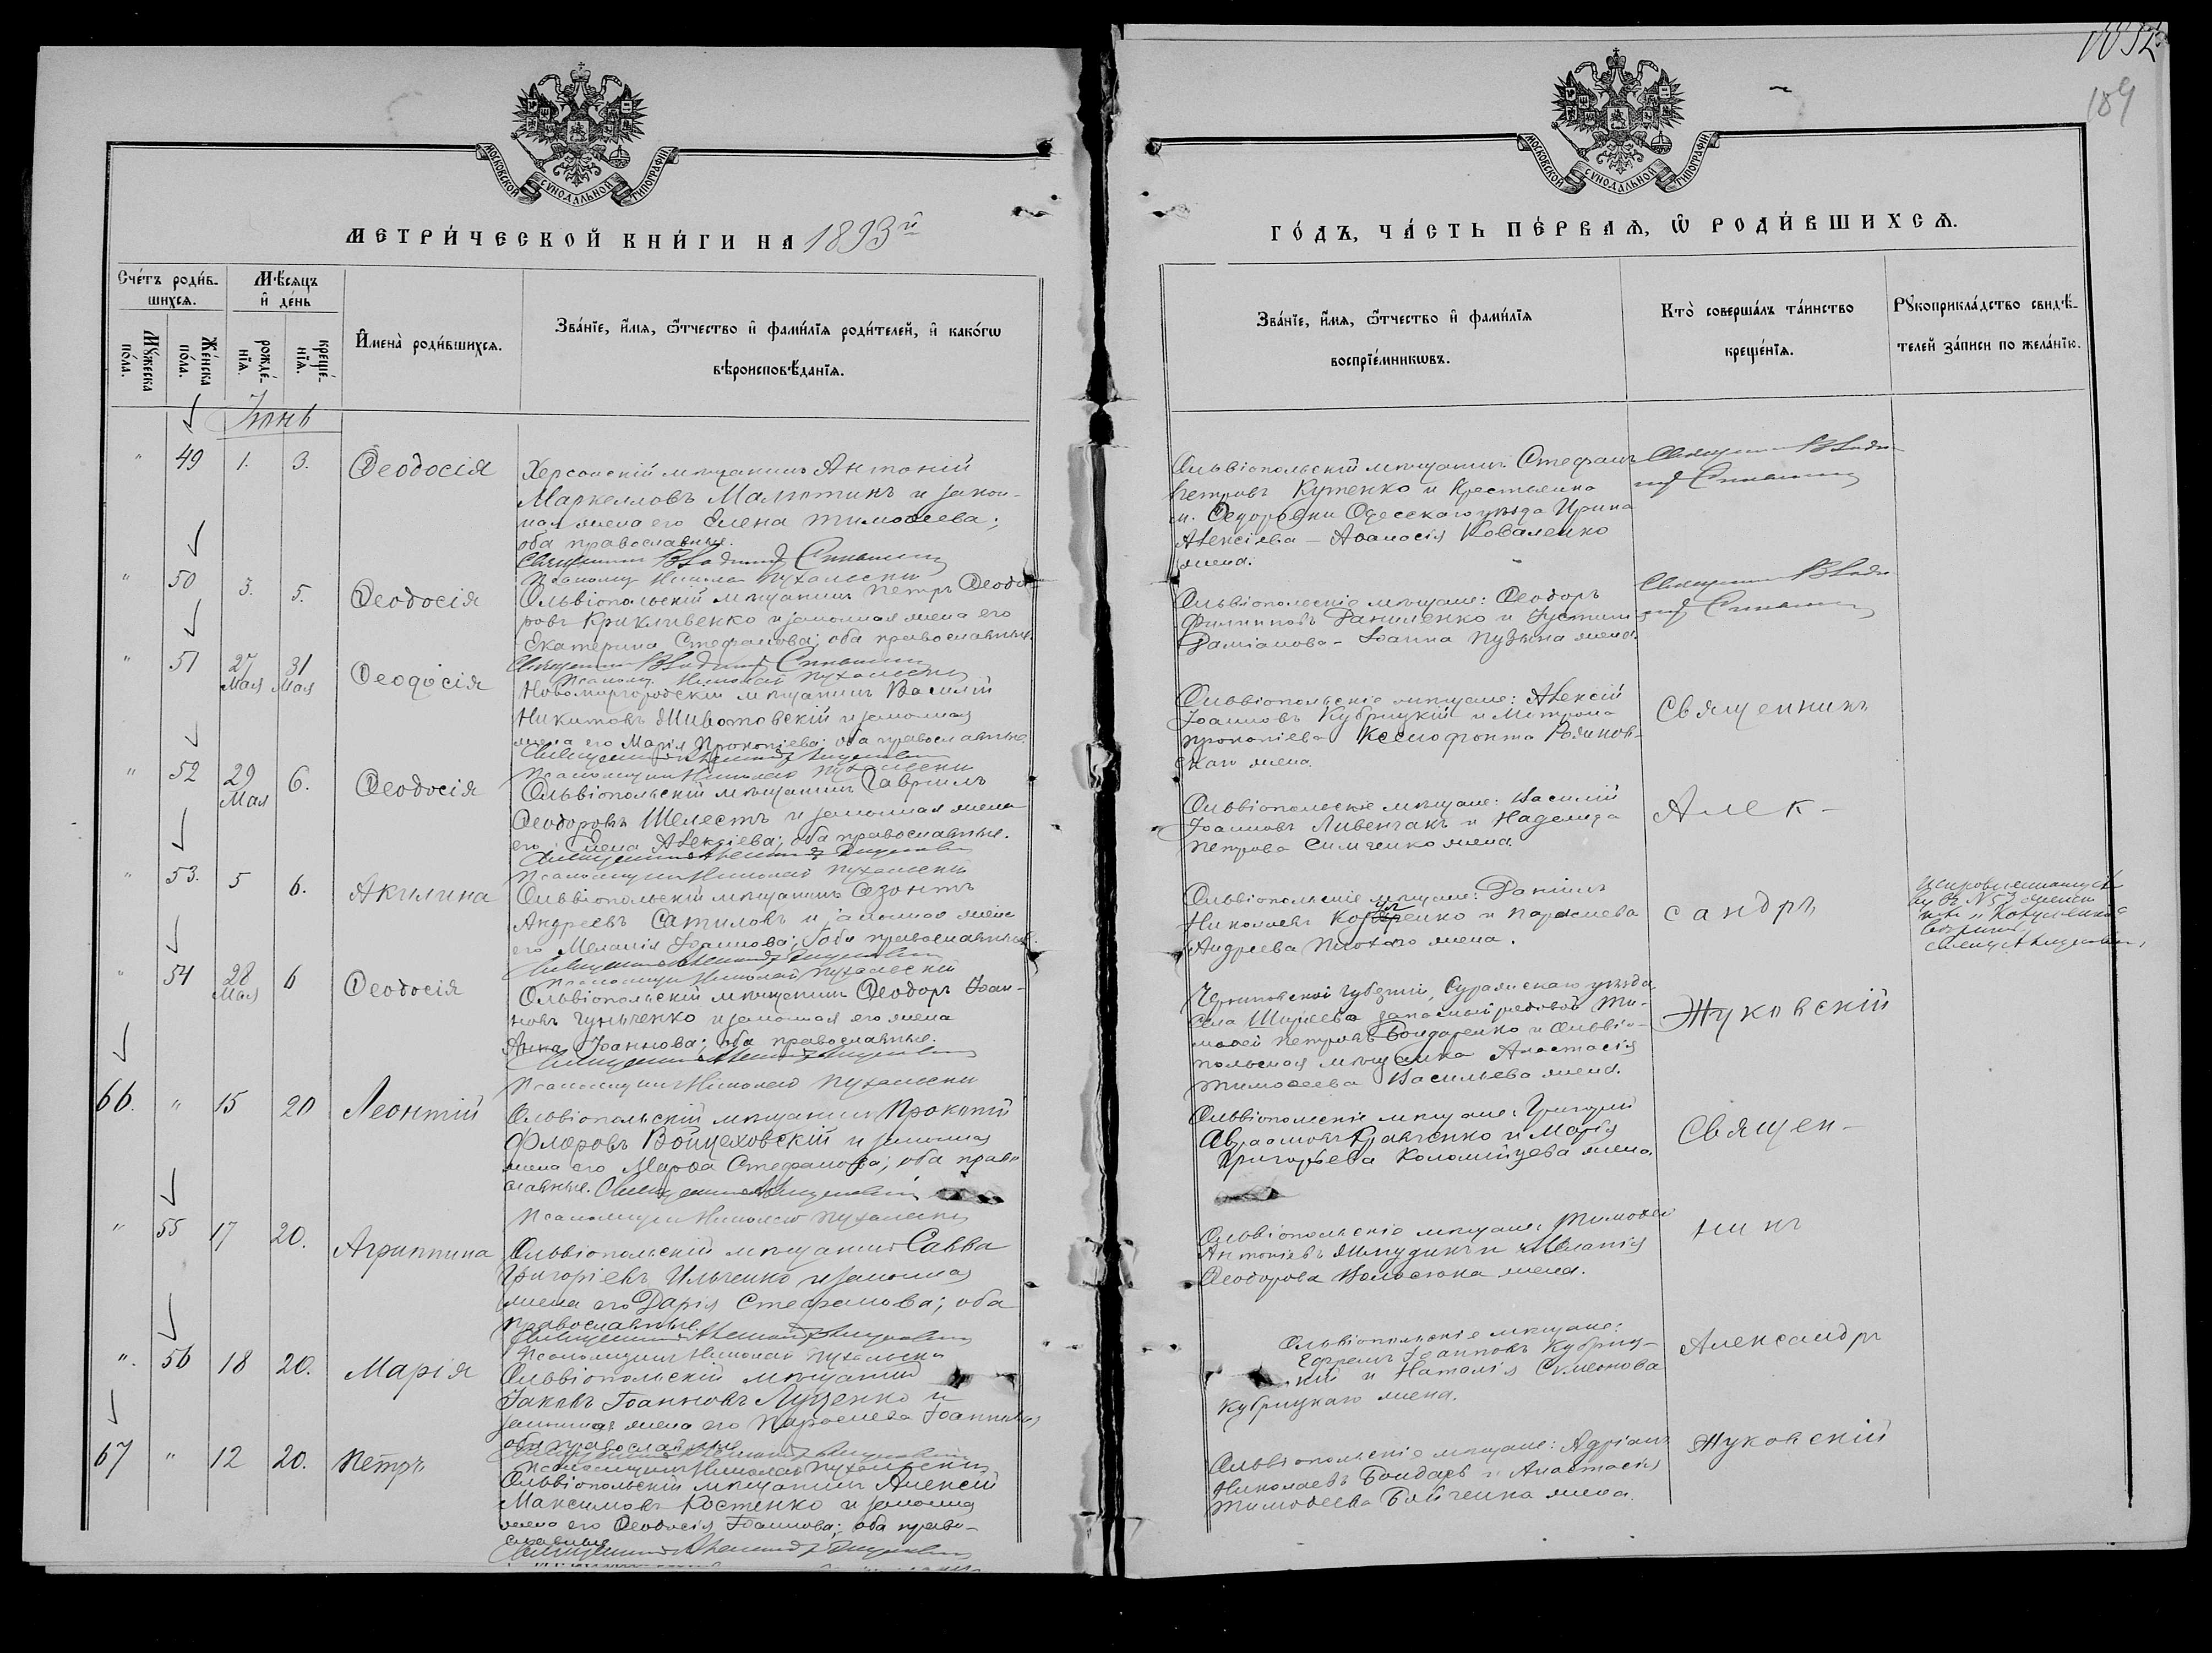 1052
189
МОСКОВСКОЙ СѴНОДАЛЬНОЙ ТИПОГРАФІИ
МОСКОВСКОЙ СѴНОДАЛЬНОЙ ТИПОГРАФІИ
МЕТРИ́ЧЕСКОЙ КНИ́ГИ НА 1893й
ГО́ДЪ, ЧА́СТЬ ПЕ́РВАѦ, Ѡ҆ РОДИ́ВШИХСѦ.
Сче́тъ роди́в-
шихсѧ.
Мѣ́сѧцъ
и҆ де́нь
Мꙋ́жеска
по́ла.
Же́нска
по́ла.
рожде́-
нїѧ.
креще́-
нїѧ.
И҆мена̀ роди́вшихсѧ.
Зва́нїе, и҆́мѧ, ѻ҆́тчество и҆ фами́лїѧ роди́телей, и҆ како́гѡ
вѣроисповѣ́данїѧ.
Зва́нїе, и҆́мѧ, ѻ҆́тчество и҆ фами́лїѧ
воспрїе́мникѡвъ.
Кто̀ соверша́лъ та́инство
креще́нїѧ.
Рꙋкоприкла́дство свидѣ́-
телей за́писи по жела́нїю.
Іюнь
" 49 1. 3. Ѳеодосія
Херсонскій мѣщанинъ Антоній
Маркелловъ Малютинъ и закон-
ная жена его Елена Тимоѳеева;
оба православные.
Священникъ
Псаломщ. Николай Пухальскій
Ольвіопольскій мѣщанинъ Стефанъ
Петровъ Кутенко и крестьянка
м. Ѳедоровки Одесскаго уѣзда Ирина
Алексіева - Аѳанасія Коваленко
жена.
Священникъ Влади-
миръ
" 50 3. 5. Ѳеодосія
Ольвіопольскій мѣщанинъ Петръ Ѳеодо-
ровъ Крикливенко и законная жена его
Екатерина Стефанова; оба православные.
Священникъ
Псаломщ. Николай Пухальскій
Ольвіопольскіе мѣщане: Ѳеодоръ
Филипповъ Даниленко и Іустина
Даміанова - Іоанна Пузына жена.
Священникъ Влади-
миръ
" 51 27 Мая 31 Мая Ѳеодосія
Новомиргородскій мѣщанинъ Василій
Никитовъ Животовскій и законная
жена его Марія Прокопіева; оба православные.
Священникъ Александръ Жуковскій
Псаломщикъ Николай Пухальскій
Ольвіопольскіе мѣщане: Алексій
Іоанновъ Кубрицкій и Матрона
Прокопіева Ксенофонта
жена.
Священникъ
" 52 29 Мая 6. Ѳеодосія
Ольвіопольскій мѣщанинъ Гавріилъ
Ѳеодоровъ Шелестъ и законная жена
его Елена Алексіева; оба православные.
Священникъ Александръ Жуковскій
Псаломщикъ Николай Пухальскій
Ольвіопольскіе мѣщане: Василій
Іоанновъ Ливенчакъ и Надежда
Петрова Симченко жена.
Алек-
" 53. 5 6. Акилина
Ольвіопольскій мѣщанинъ Созонтъ
Андреевъ Сатиловъ и законная жена
его Меланія Іоаннова; оба православные.
Священникъ Александръ Жуковскій
Псаломщикъ Николай Пухальскій
Ольвіопольскіе мѣщане: Даніилъ
Николаевъ и Параскева
Андреева жена.
сандръ
" 54 28 Мая 6 Ѳеодосія
Ольвіопольскій мѣщанинъ Ѳеодоръ Іоан-
новъ Гунченко и законная его жена
Анна Іоаннова; оба православные.
Священникъ Александръ Жуковскій
Псаломщикъ Николай Пухальскій
Черниговской губерніи, Суражскаго уѣзда
села запасный рядовой Ти-
моѳей Петровъ Бондаренко и Ольвіо-
польская мѣщанка Анастасія
Тимоѳеева Васильева жена.
Жуковскій
66. " 15 20 Леонтій
Ольвіопольскій мѣщанинъ Прокопій
Флоровъ Войцеховскій и законная
жена его Марѳа Стефанова; оба право-
славные. Священникъ А. Жуковскій
Псаломщикъ Николай Пухальскій
Ольвіопольскіе мѣщане: Григорій
Авраамовъ Кравченко и Марія
Григорьева Коломійцева жена.
Священ-
" 55 17 20. Агриппина
Ольвіопольскій мѣщанинъ Савва
Григоріевъ Ильченко и законная
жена его Дарія Стефанова; оба
православные.
Священникъ Александръ Жуковскій
Псаломщикъ Николай Пухальскій
Ольвіопольскіе мѣщане: Тимоѳей
Антоніевъ и Меланія
Ѳеодорова Волосюка жена.
никъ
". 56 18 20. Марія
Ольвіопольскій мѣщанинъ
Іаковъ Іоанновъ Луценко и
законная жена его Параскева Іоаннова;
оба православные.
Священникъ Александръ Жуковскій
Псаломщикъ Николай Пухальскій
Ольвіопольскіе мѣщане:
Ефремъ Іоанновъ Кубриц-
кій и Наталія Симеонова
Кубрицкаго жена.
Александръ
67 " 12 20. Петръ
Ольвіопольскій мѣщанинъ Алексій
Максимовъ Костенко и законная
жена его Ѳеодосія Іоаннова; оба право-
славные.
Священникъ Александръ Жуковскій
Ольвіопольскіе мѣщане: Адріанъ
Николаевъ Бондарь и Анастасія
Тимоѳеева Бойченка жена.
Жуковскій